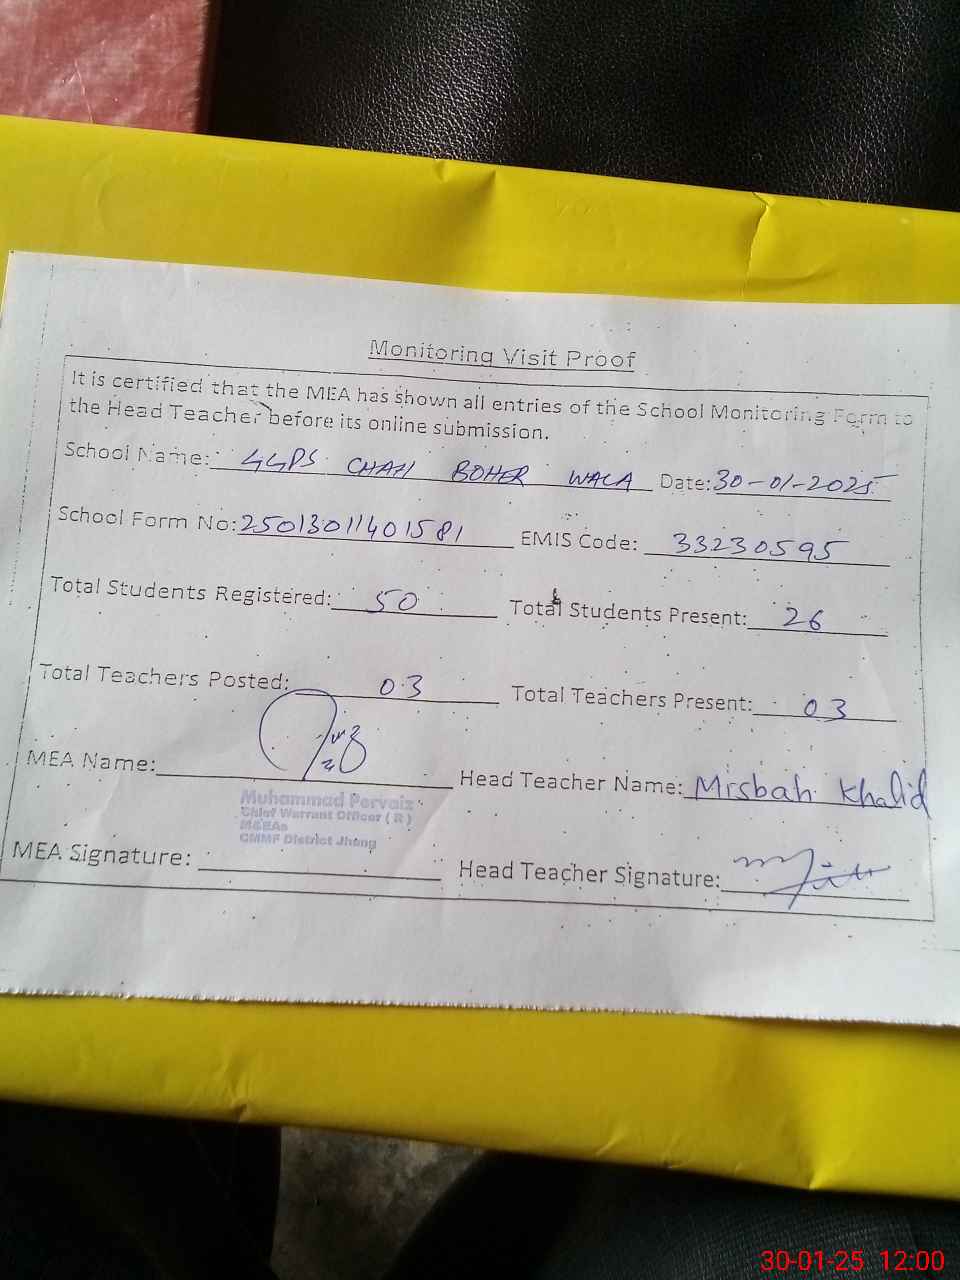 Monitoring Visit Proof
It is certified that the MEA has shown all entries of the School Monitoring Form to
the Head Teacher before its online submission.
School Name: GGPS CHAH BOHER WALA Date: 30-01-2025
School Form No: 25013011401581 EMIS Code: 33230595
Total Students Registered: 50 Total Students Present: 26
Total Teachers Posted: 03 Total Teachers Present: 03
MEA Name: Head Teacher Name: Misbah Khalid
Muhammad Pervaiz
Chief Warrant Officer ( R )
MEEAs
CMMF District Jhang
MEA Signature: Head Teacher Signature:
30-01-25 12:00